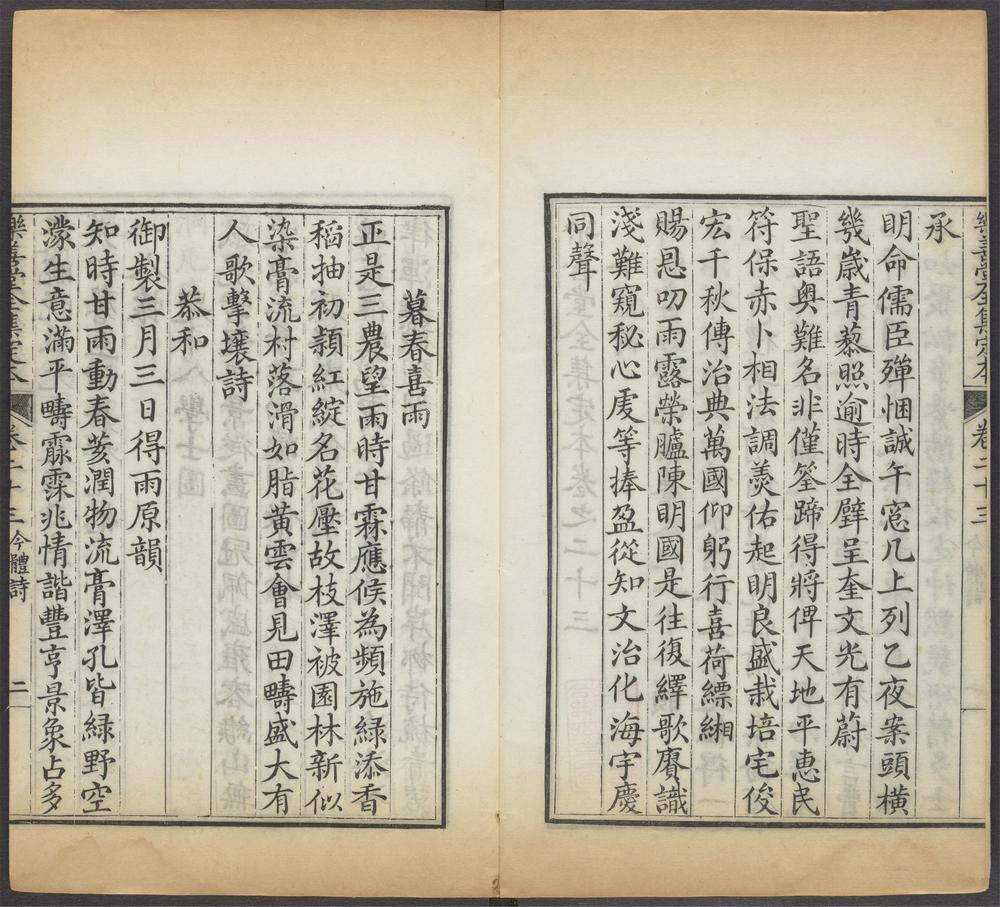 樂善堂全集定本 卷二十三 一
承
明命儒臣殫悃誠午窓几上列乙夜案頭橫
幾歲青藜照逾時全璧呈奎文光有蔚
聖語奧難名非僅筌蹄得將俾天地平惠民
符保赤卜相法調羮佑起明良盛栽培宅俊
宏千秋傳治典萬國仰躬行喜荷縹緗
賜恩叨雨露榮臚陳明國是往復繹歌賡識
淺難窺秘心虔等捧盈從知文治化海宇慶
同聲
暮春喜雨
正是三農望雨時甘霖應候為頻施綠添香
稻抽初穎紅綻名花壓故枝澤被園林新似
染膏流村落滑如脂黃雲會見田疇盛大有
人歌擊壤詩
恭和
御製三月三日得雨原韻
知時甘雨動春荄潤物流膏澤孔皆緑野空
濛生意滿平疇霢霂兆情諧豐亨景象占多
樂善堂全集定本 卷二十三 今體詩 二